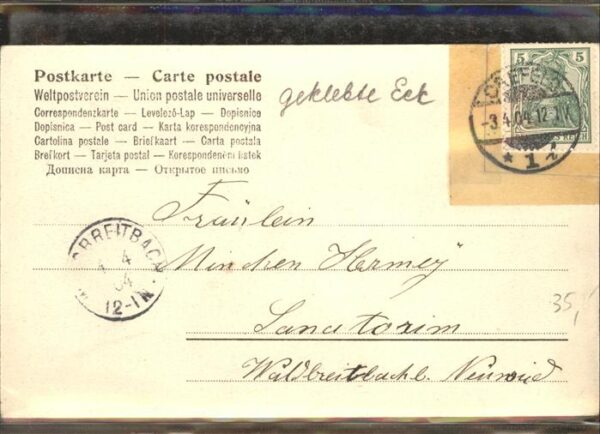 Postkarte — Carte postale
Weltpostverein — Union postale universelle
Correspondenzkarte — Levelező-Lap — Dopisnice
Dopisnica — Post card — Karta korespondencyjna
Cartolina postale — Briefkaart — Carta postala
Brefkort — Tarjeta postal — Korespondenční lístek
Дописна карта — Открытое письмо
geklebte Eck
5 5
CREFELD
3.4.04.12-1N
* 1
BREITBACH
4 4
04
12-1N
Fräulein
Minchen Hermey
35,-
Sanatorium
Waldbreitbach b. Neuwied